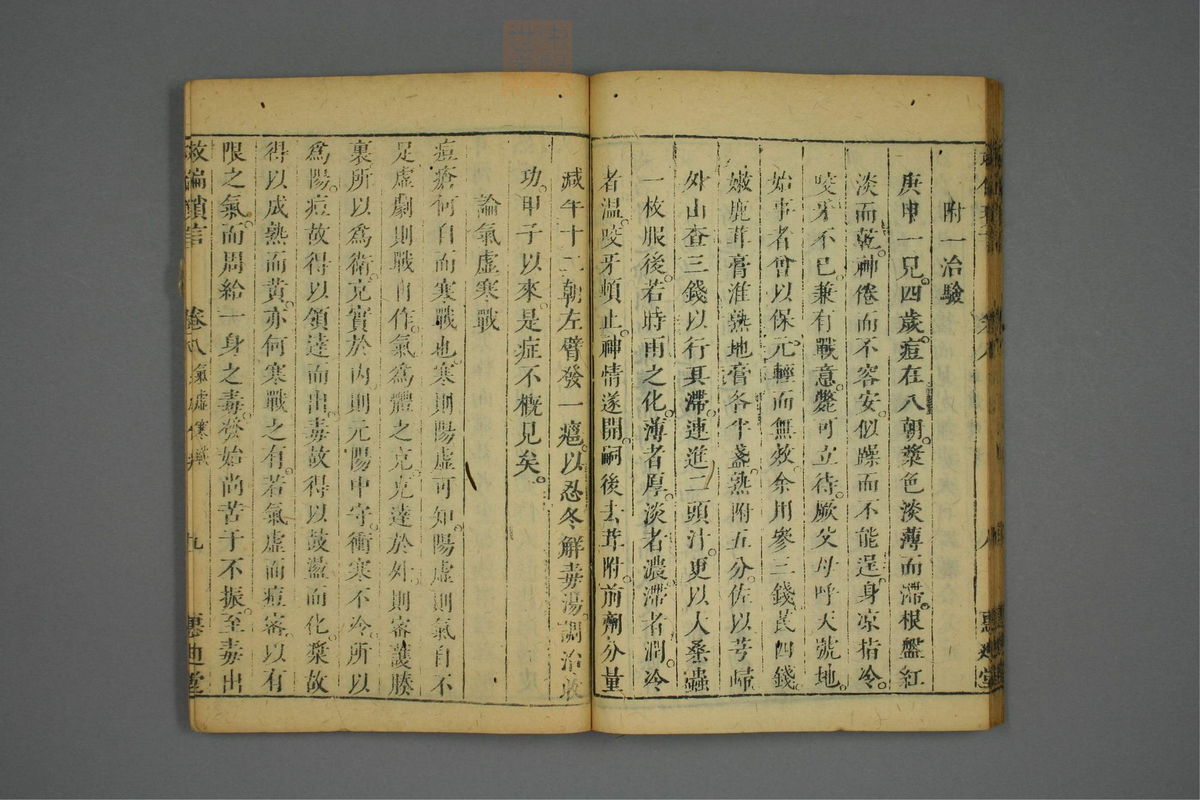 附一治驗
庚申一兒。四歲。痘在八朝。漿色淡薄而滯。根盤紅
淡而乾。神倦而不容安。似躁而不能逞。身凉指冷。
咬牙不已。兼有戰意。斃可立待。厥父母呼天號地。
始事者曾以保元輕而無效。余用參三錢芪四錢。
嫩鹿茸膏淮熟地膏各半盞。熟附五分。佐以芎歸
外山查三錢以行其滯。連進二頭汁。更以人桑蟲
一枚服後。若時雨之化。薄者厚。淡者濃。滯者潤。冷
者温。咬牙頓止。神情遂開。嗣後去茸附。前劑分量
減午十二朝左臂發一癰。以忍冬解毒湯調治收
功。甲子以來。是症不概見矣。
論氣虛寒戰
痘瘡何自而寒戰也。寒則陽虛可知。陽虛則氣自不
足。虛劇則戰自作。氣爲體之充。充達於外。則審護腠
裏。所以爲衛。充實於內。則元陽中守。衝寒不冷。所以
爲陽。痘故得以領達而出。毒故得以鼓盪而化。漿故
得以成熟而黃。亦何寒戰之有。若氣虛而痘審。以有
限之氣。而周給一身之毒。發始尚苦于不振。至毒出
救偏瑣言
卷八 氣虛寒戰
九
惠迪堂